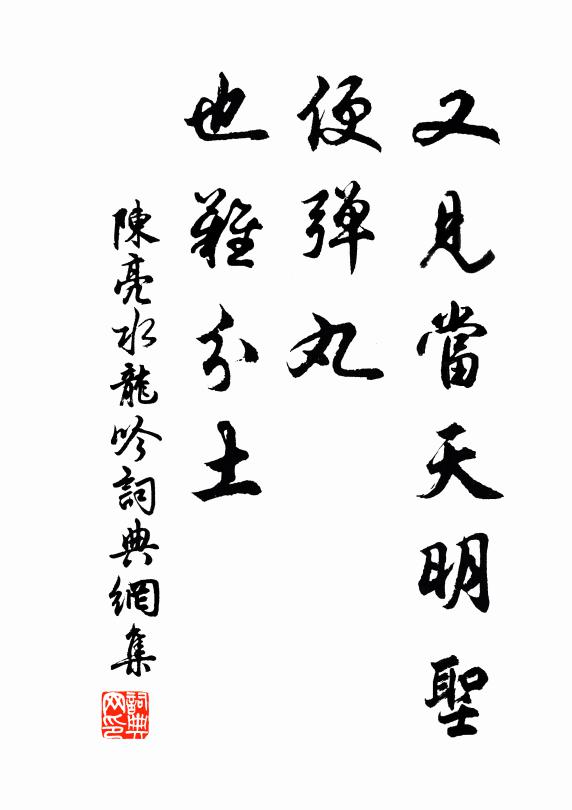 又見當天明聖
便弾丸
也難分土
陳亮水龍吟詞典網集
詞典網印